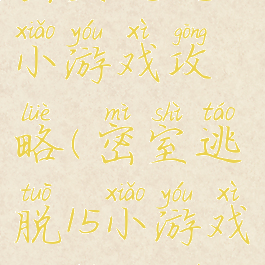 xiǎo yóu xì gōng
小游戏攻
lüè mì shì táo
略(密室逃
tuō xiǎo yóu xì
脱15小游戏